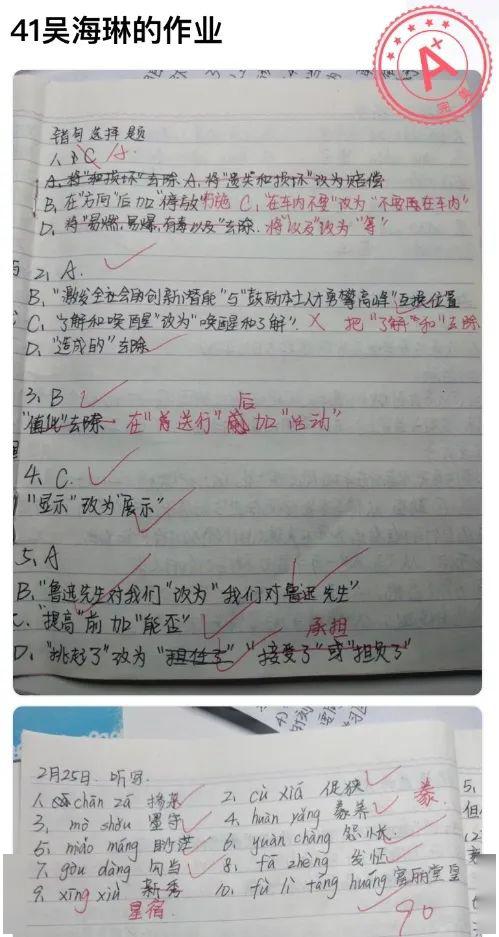 41吴海琳的作业
A
完美
错句选择题
1、C A.
A、将"和损坏"去除 A、将"遗失和损坏"改为赔偿
B、在"方向"后加 得与放 措施 C、在车内不要"改为"不要再在车内"
D、将"易燃、易爆、有毒以及"去除. 将"以及"改为"等"
2、A.
B、"激发全社会的创新潜能"与"鼓励本土人才勇攀高峰"互换位置
C、"了解和唤醒"改为"唤醒和了解". X 把"了解"和"去除
D、"造成的"去除
3、B
后
"值此"去除 在"首送行" 加"活动"
4、C.
"显示"改为"展示"
5、A
B、"鲁迅先生对我们"改为"我们对鲁迅先生"
C、"提高"前加"能否"
承担
D、"挑起了"改为"担任了" "接受了"或"担负了"
2月25日. 听写.
1、chān zá 掺杂 2、cù xiá 促狭 豢
3、mò shǒu 墨守 4、huàn yǎng 豢养
5、miǎo máng 眇茫 6、yuàn chàng 怨怅.
7、gòu dàng 勾当 8、fā zhèng 发怔
9、xīng xiù 新秀 10、fù lì táng huáng 富丽堂皇
星宿
90
5,